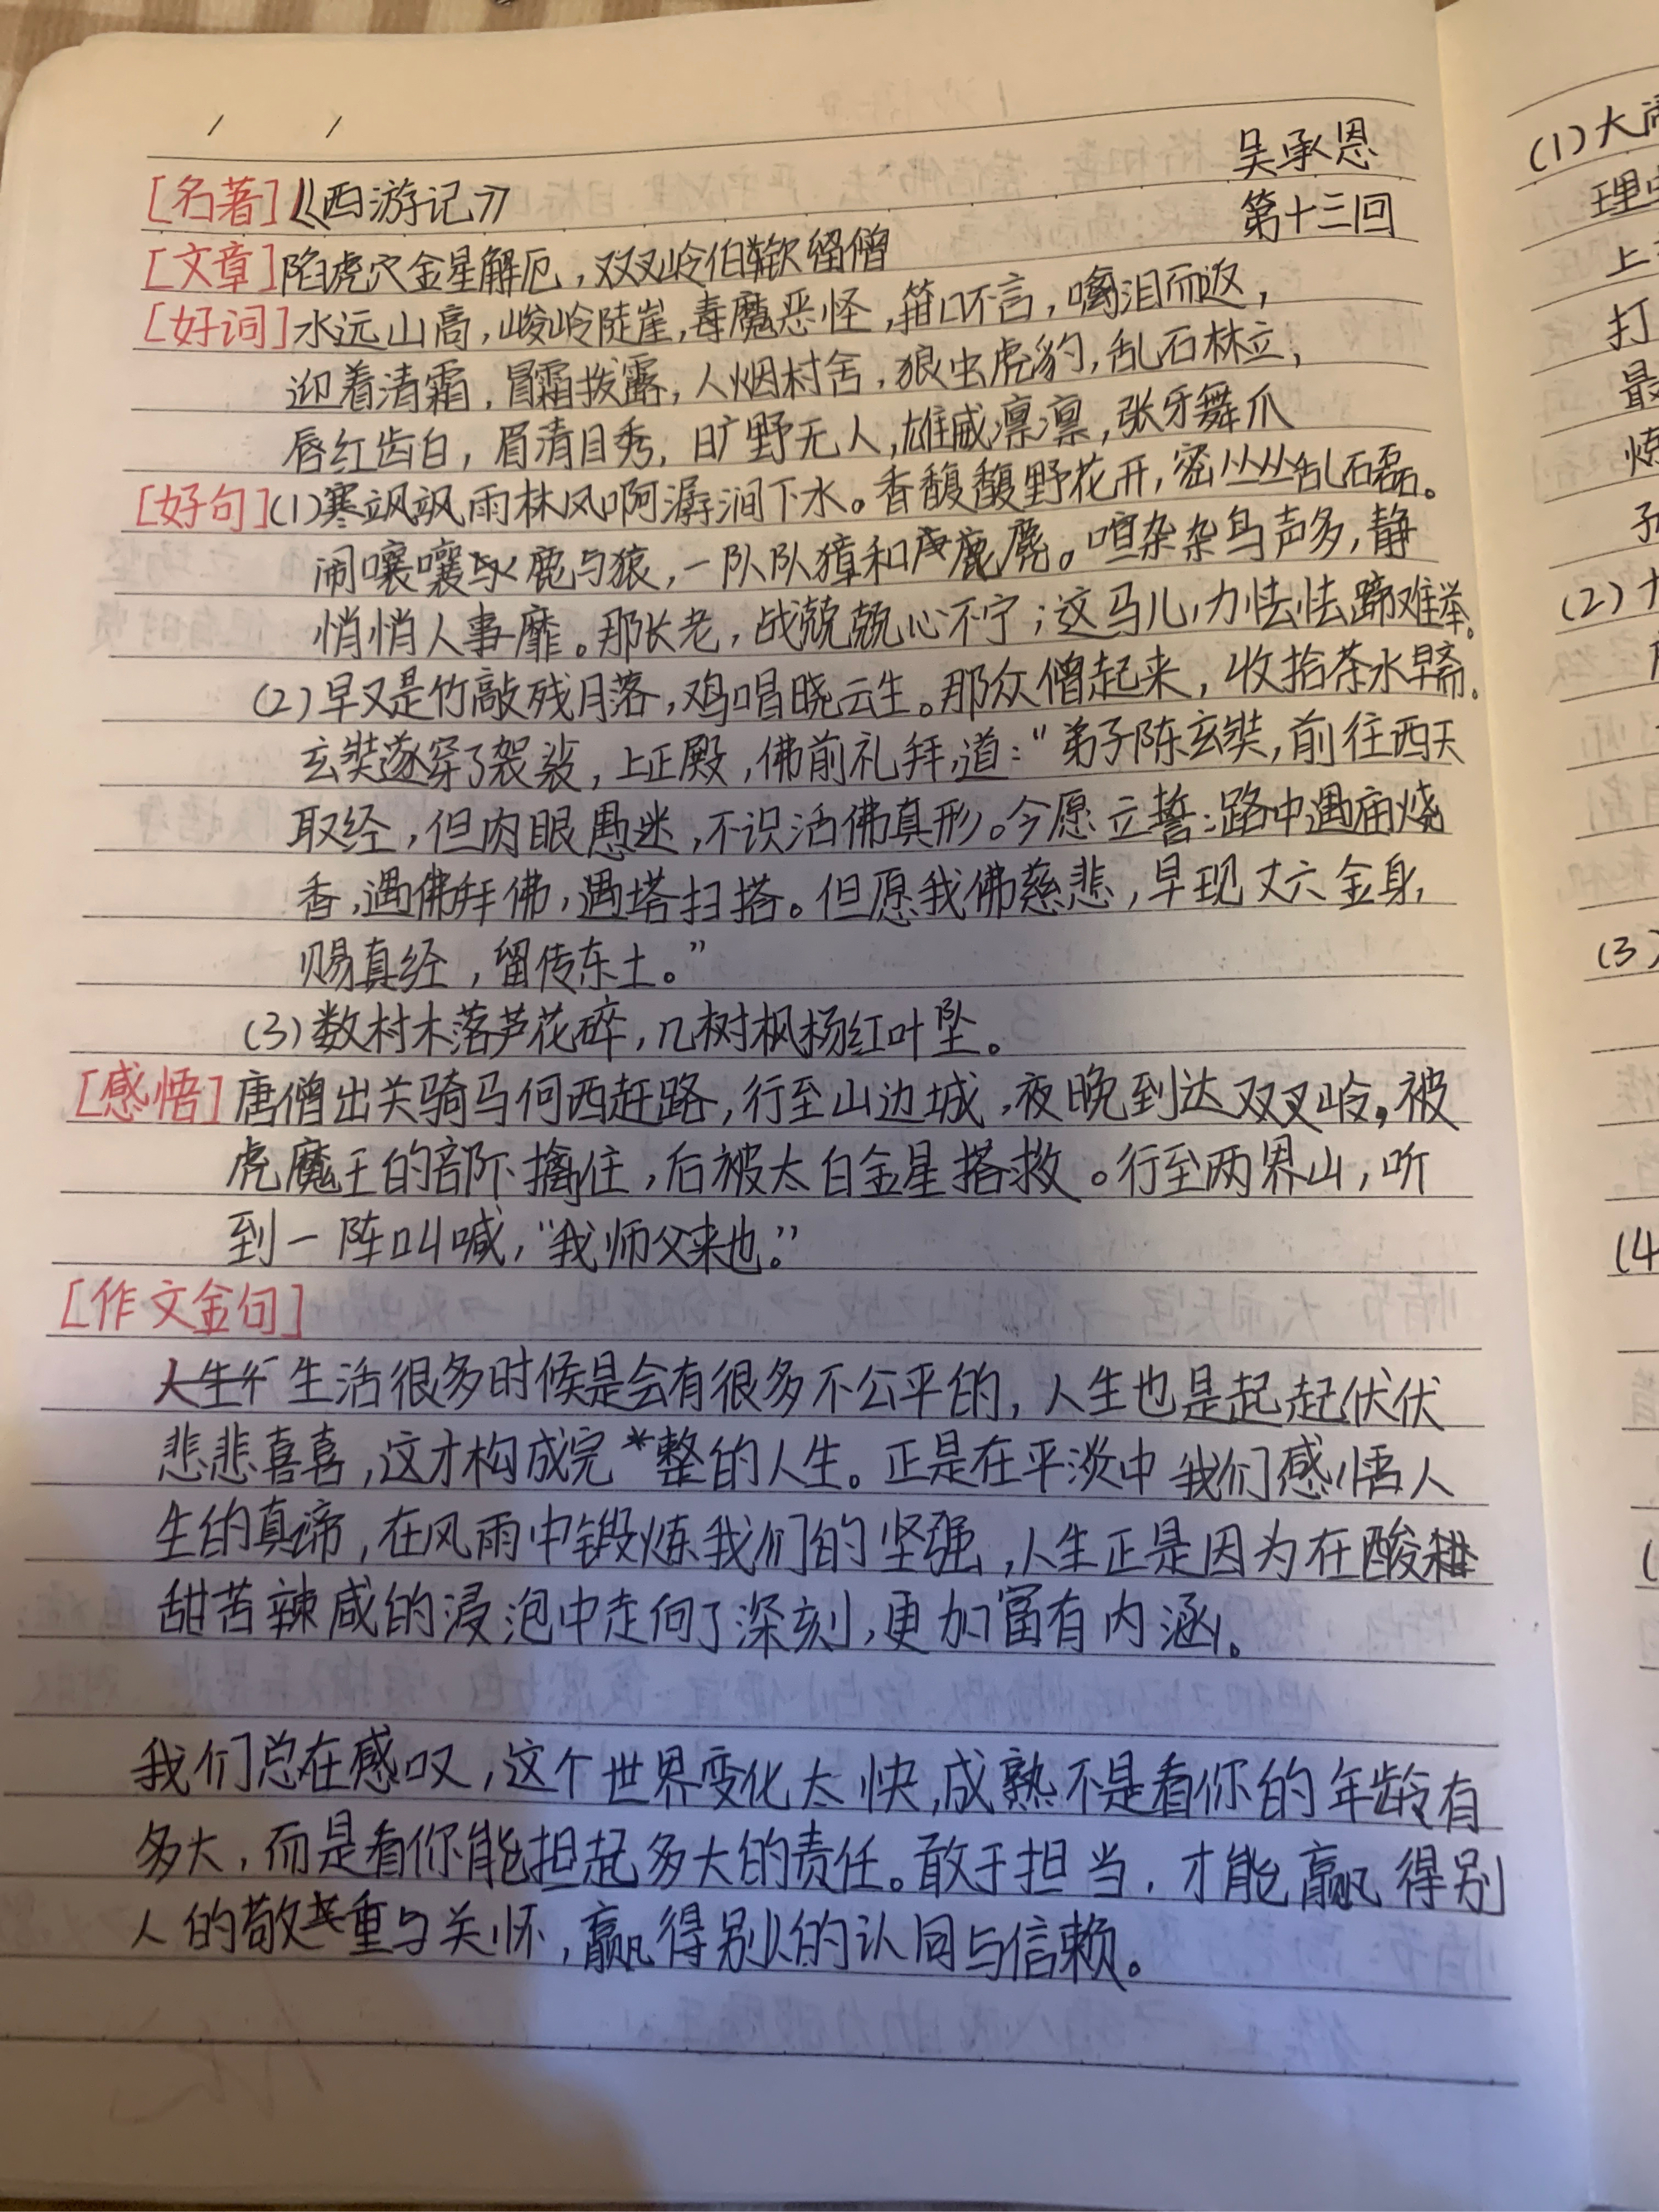 吴承恩
[名著]《西游记》
第十三回
[文章]陷虎穴金星解厄,双叉岭伯钦留僧
[好词]水远山高,峻岭陡崖,毒魔恶怪,箝口不言,噙泪而返,
迎着清霜,冒霜拨露,人烟村舍,狼虫虎豹,乱石林立,
唇红齿白,眉清目秀,旷野无人,雄威凛凛,张牙舞爪
[好句](1)寒飒飒雨林风,响潺潺涧下水。香馥馥野花开,密丛丛乱石磊。
闹嚷嚷鹿与猿,一队队獐和麂。喧杂杂鸟声多,静
悄悄人事靡。那长老,战兢兢心不宁;这马儿,力怯怯蹄难举。
(2)早又是竹敲残月落,鸡唱晓云生。那众僧起来,收拾茶水早斋。
玄奘遂穿了袈裟,上正殿,佛前礼拜,道:“弟子陈玄奘,前往西天
取经,但肉眼愚迷,不识活佛真形。今愿立誓:路中遇庙烧
香,遇佛拜佛,遇塔扫塔。但愿我佛慈悲,早现丈六金身,
赐真经,留传东土。”
(3)数村木落芦花碎,几树枫杨红叶坠。
[感悟]唐僧出关骑马向西赶路,行至山边城,夜晚到达双叉岭,被
虎魔王的部下擒住,后被太白金星搭救。行至两界山,听
到一阵叫喊,“我师父来也。”
[作文金句]
生活很多时候是会有很多不公平的,人生也是起起伏伏
悲悲喜喜,这才构成完整的人生。正是在平淡中我们感悟人
生的真谛,在风雨中锻炼我们的坚强,人生正是因为在酸
甜苦辣咸的浸泡中走向了深刻,更加富有内涵。
我们总在感叹,这个世界变化太快,成熟不是看你的年龄有
多大,而是看你能担起多大的责任。敢于担当,才能赢得别
人的敬重与关怀,赢得别人的认同与信赖。
(1)大闹
理
上
打
最
炼
(2)
(3)
(4